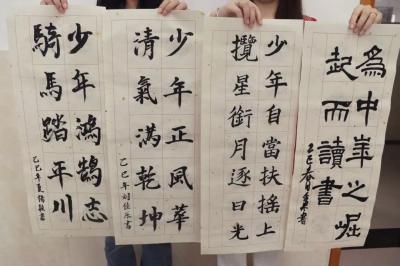 為中華之崛
起而讀書
乙巳春月書
少年自當扶搖上
攬星銜月逐日光
少年正風華
清氣滿乾坤
乙巳年劉佳書
少年鴻鵠志
騎馬踏平川
乙巳年夏書